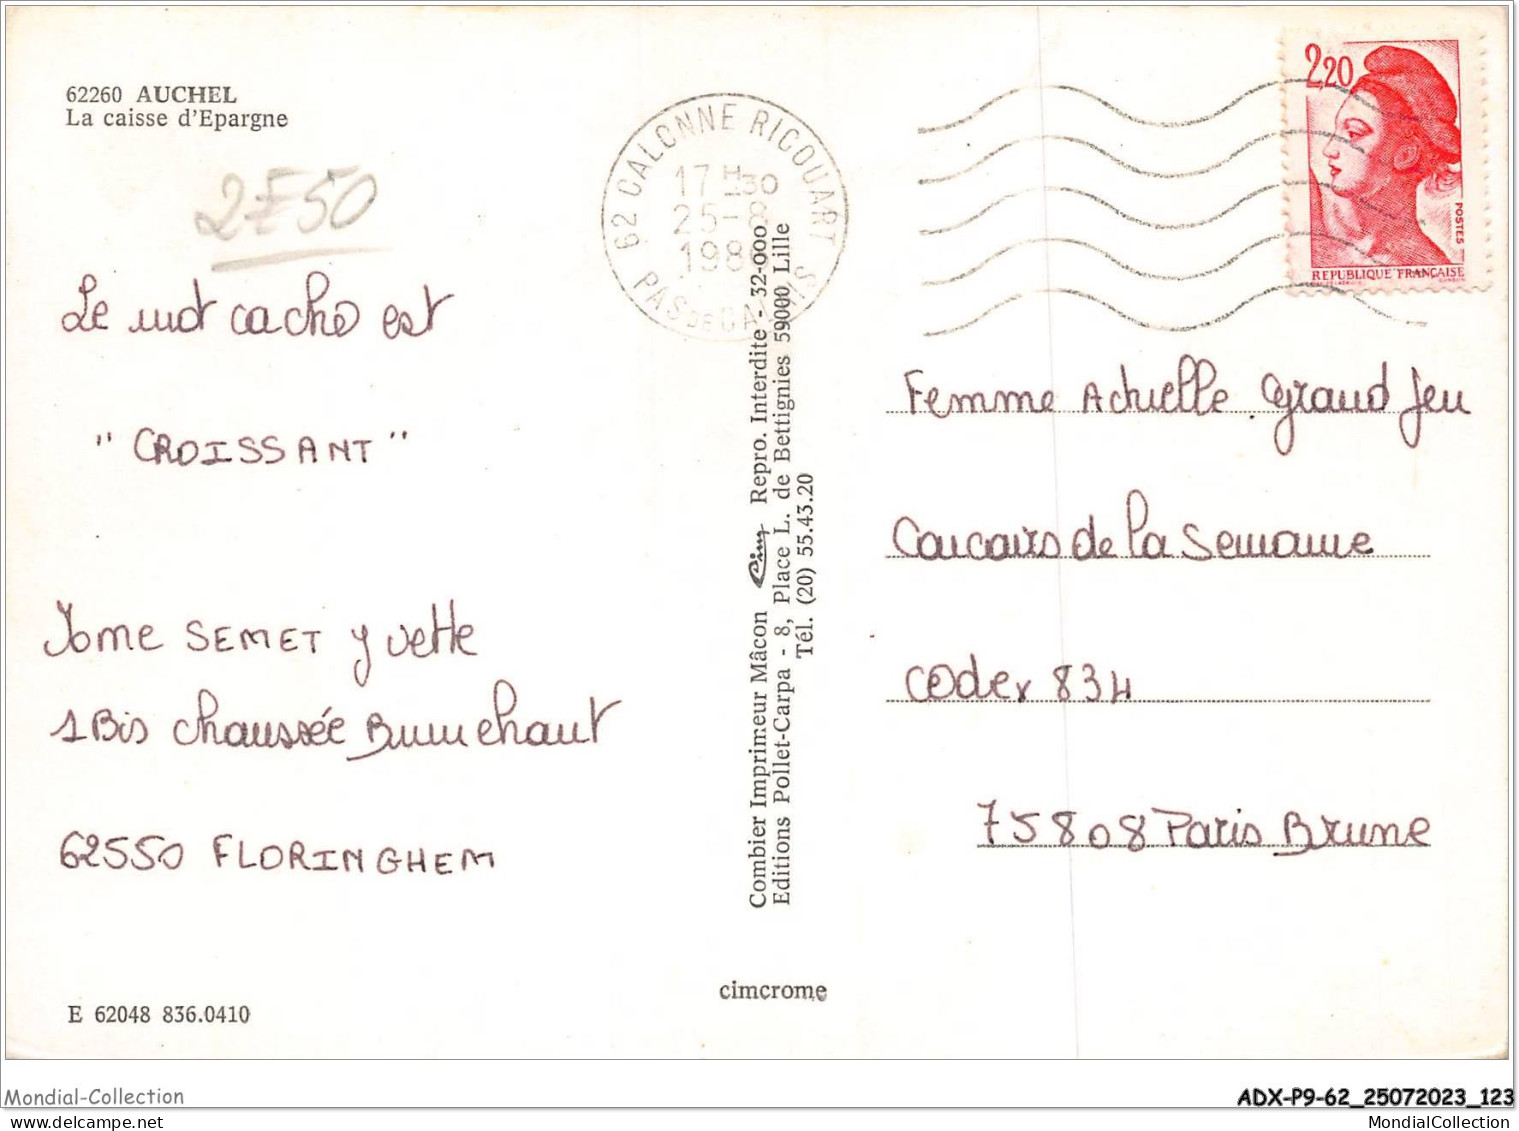 62260 AUCHEL
La caisse d'Epargne
2F50
Le mot caché est
"CROISSANT"
SEMET Yvette
1Bis chaussée Brunehaut
62550 FLORINGHEM
E 62048 836.0410
62 CALONNE RICOUART
PAS DE CALAIS
17H30
25-8
Combier Imprimeur Mâcon Cim Repro. Interdite - 32-000
Editions Pollet-Carpa - 8, Place L. de Bettignies 59000 Lille
Tél. (20) 55.43.20
cimcrome
2,20
POSTES
REPUBLIQUE FRANÇAISE
GANDON
Femme Actuelle Grand Jeu
Concours de la Semaine
Codex 834
75808 Paris Brune
Mondial-Collection
ADX-P9-62_25072023_123
MondialCollection